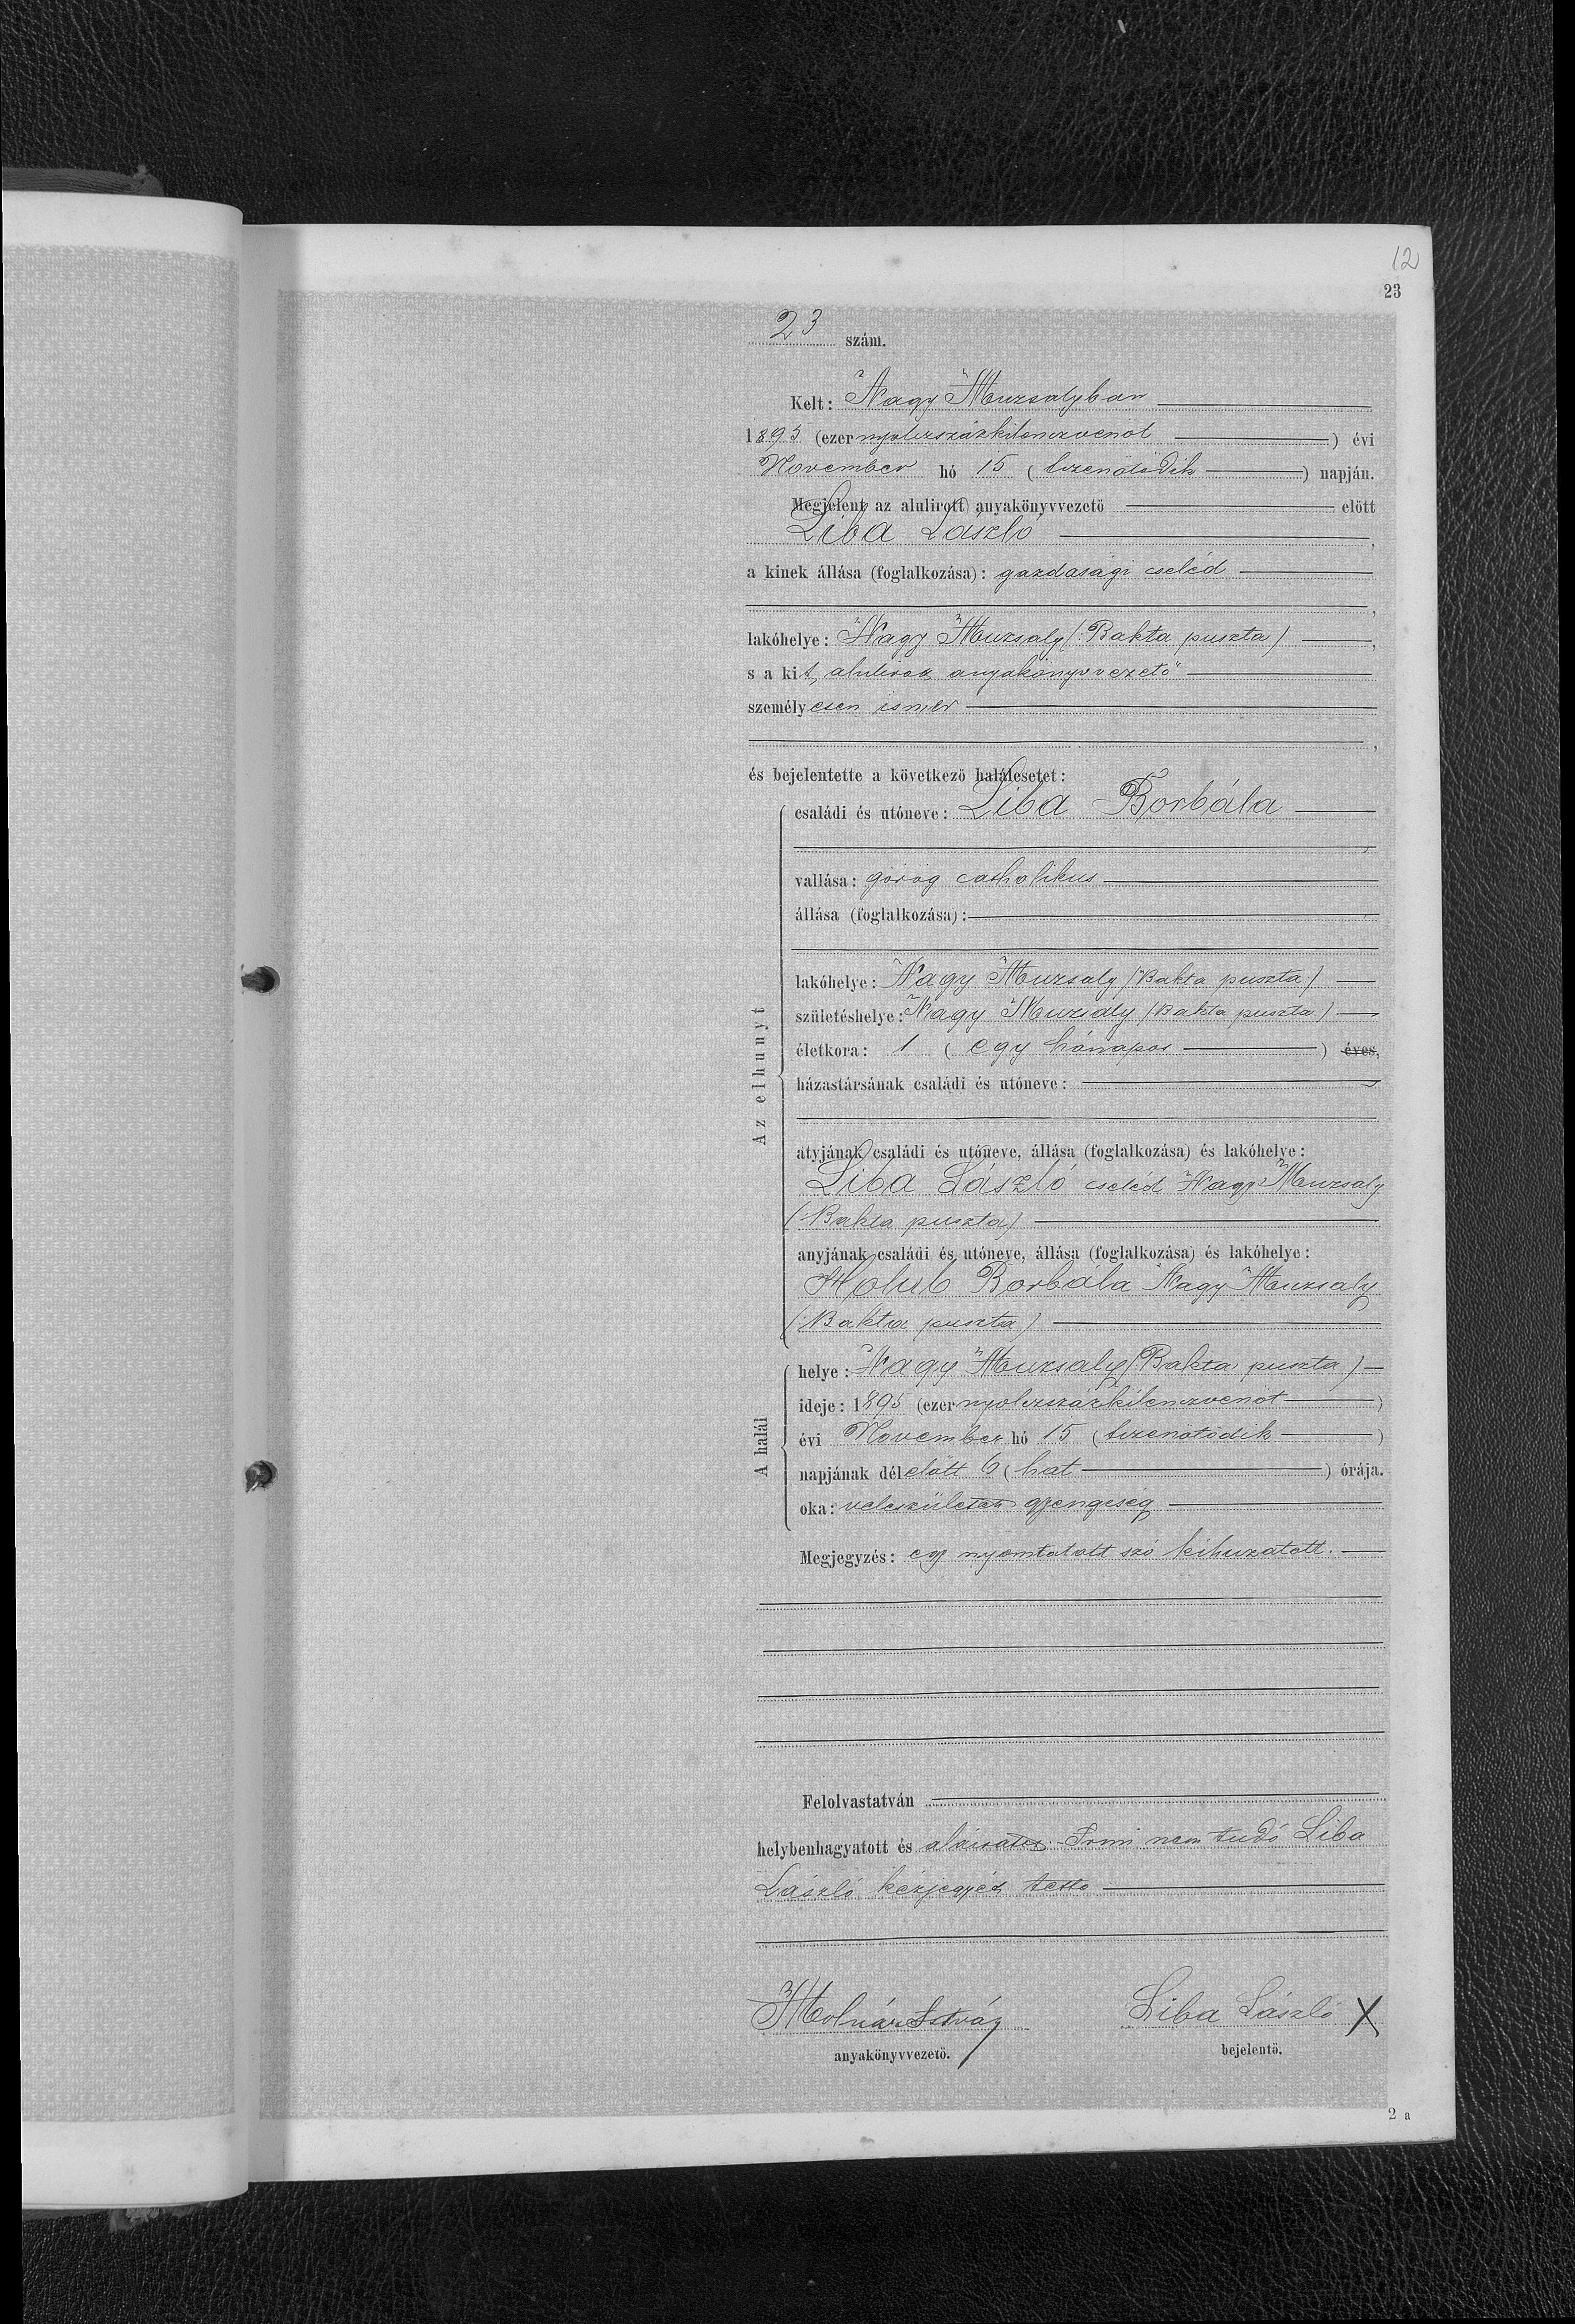 12
23
23 szám.
Kelt: Nagy Muzsalyban
1895 (ezer nyolczszázkilenczvenöt) évi
November hó 15 (tizenötödik) napján.
Megjelent az alulirott anyakönyvvezető előtt
Liba László,
a kinek állása (foglalkozása): gazdasági cseléd
,
lakóhelye: Nagy Muzsaly (: Bakta puszta),
s a kit, alulirott anyakönyvvezető
személyesen ismer
,
és bejelentette a következő halálesetet:
Az elhunyt
családi és utóneve: Liba Borbála
,
vallása: görög catholikus
állása (foglalkozása):
lakóhelye: Nagy Muzsaly (Bakta puszta)
születéshelye: Nagy Muzsaly (Bakta puszta)
életkora: 1 (egy hónapos) éves,
házastársának családi és utóneve:
atyjának családi és utóneve, állása (foglalkozása) és lakóhelye:
Liba László cseléd Nagy Muzsaly
(: Bakta puszta)
anyjának családi és utóneve, állása (foglalkozása) és lakóhelye:
Holub Borbála Nagy Muzsaly
(: Bakta puszta)
A halál
helye: Nagy Muzsaly (: Bakta puszta)
ideje: 1895 (ezer nyolczszázkilenczvenöt)
évi November hó 15 (tizenötödik)
napjának délelőtt 6 (hat) órája.
oka: veleszületett gyengeség
Megjegyzés: egy nyomtatott szó kihuzatott.
Felolvastatván
helybenhagyatott és aláiratott. - Irni nem tudó Liba
László kézjegyét tette
Molnár István Liba László X
anyakönyvvezető. bejelentő.
2 a